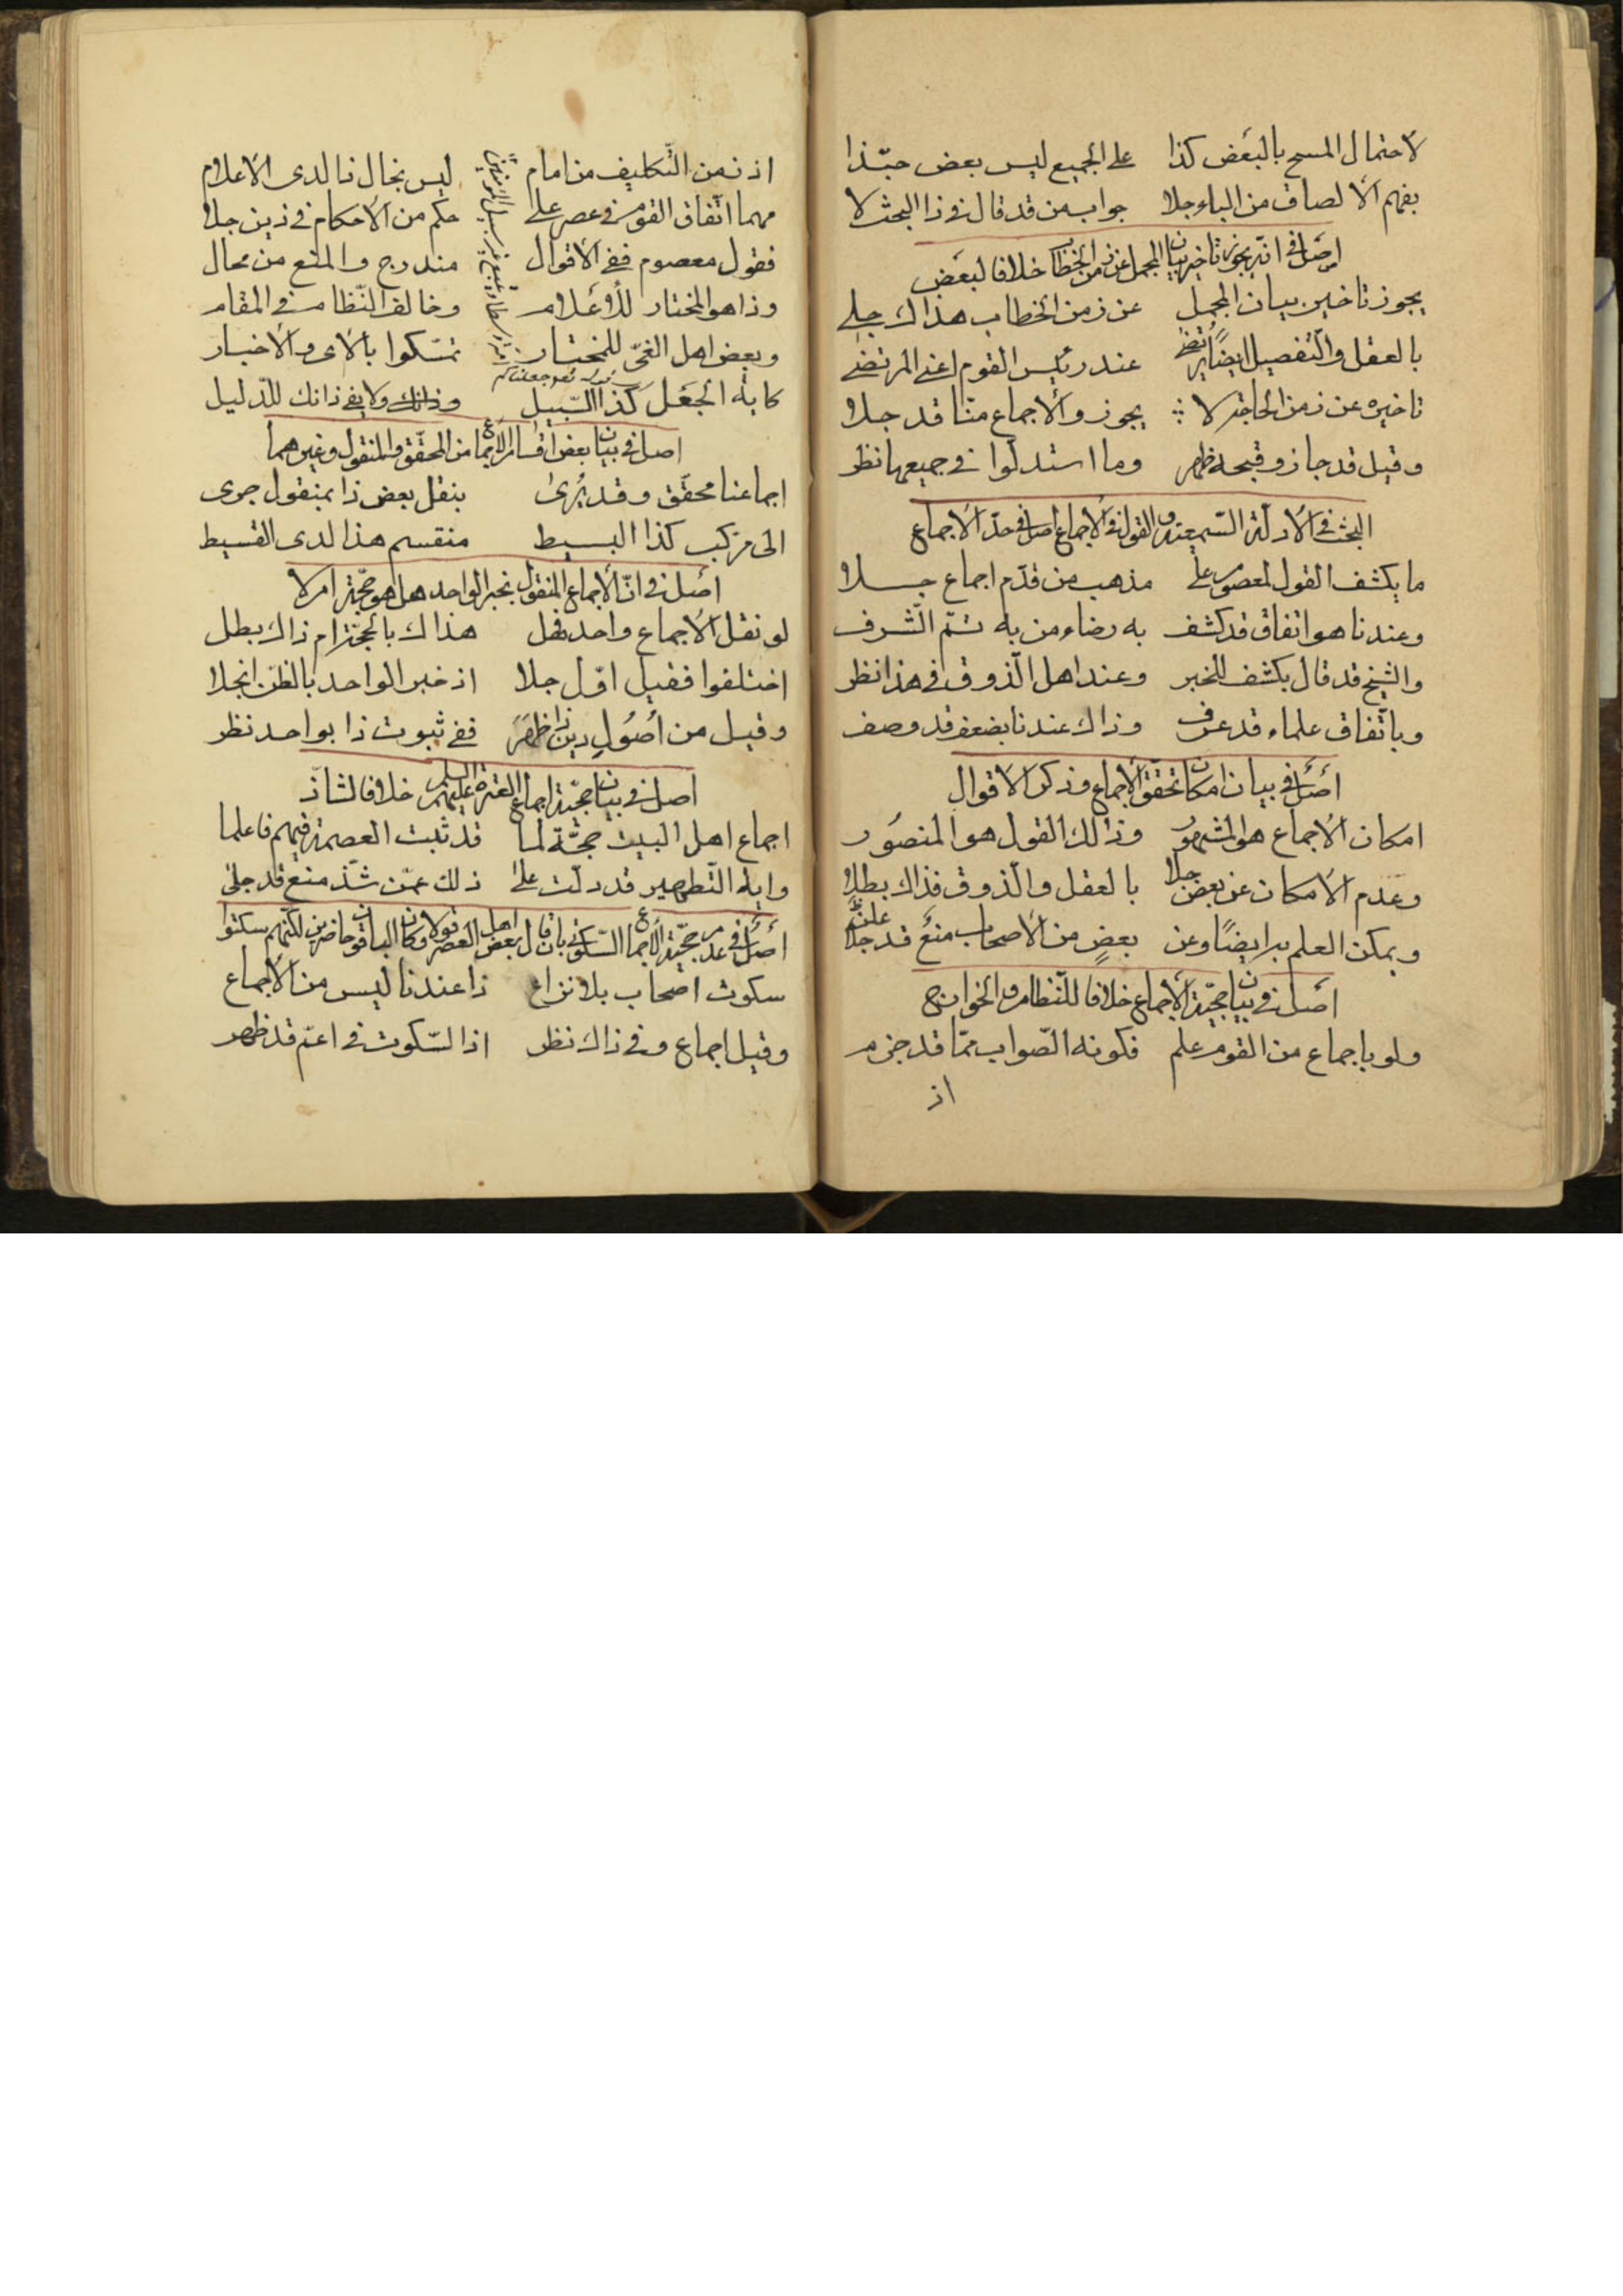 لاحتمال المسح بالبعض كذا على الجميع ليس بعض حبّذا
يفهم الالصاق من الباء جلا جواب من قد قال فى ذا البحث لا
اصل فى انّه يجوز تاخير بيان المجمل عن زمن الخطاب خلافا لبعض
يجوز تاخير بيان المجمل عن زمن الخطاب هذاك جلى
بالعقل والتّفصيل ايضًا يرتضى عند رئيس القوم اعنى المرتضى
تاخيره عن زمن الحاجة لا يجوز والاجماع منّا قد جلا
وقيل قد جاز وقبحه ظهر وما استدلّوا فى جميعها نظر
البحث فى الادلّة السّمعيّة والقول فى الاجماع اصل فى حدّ الاجماع
ما يكشف القول لمعصوم على مذهب من قدّم اجماع جلا
وعندنا هو اتفاق قد كشف به رضاء من به تمّ الشّرف
والشيخ قد قال بكشف للخبر وعند اهل الذّوق فى هذا نظر
وباتّفاق علماء قد عرف وذاك عندنا بضعف قد وصف
اصل فى بيان امكان تحقّق الاجماع وذكر الاقوال
امكان الاجماع هو المشهور وذلك القول هو المنصور
وعدم الامكان عن بعض جلا بالعقل والذّوق فذاك بطلا
ويمكن العلم به ايضًا وعن بعضٍ من الاصحاب منع قد علن
اصل فى بيان حجّيّة الاجماع خلافا للنّظام والخوارج
ولو باجماع من القوم علم فكونه الصّواب ممّا قد جزم
اذ
اذ زمن التّكليف من امام ليس بخال ذا لدى الاعلام
مهما اتّفاق القوم فى عصر على حكم من الاحكام فى دين جلا
فقول معصوم ففى الاقوال مندرج والمنع من محال
وذا هو المختار للأعلام وخالف النّظام فى المقام
وبعض اهل الغىّ للمختار تمسّكوا بالاى والاخبار
كاية الجعل كذا السّبيل وذانك ولا يفى ذانك للدّليل
قوله تعو جعلناكم
ويتّبع غير سبيل المؤمنين
اصل فى بيان بعض اقسام الاجماع من المحقّق والمنقول وغيرهما
اجماعنا محقّق وقد يُرى بنقل بعض ذا بمنقول جرى
الى مركب كذا البسيط منقسم هذا لدى القسيط
اصل فى انّ الاجماع المنقول بخبر الواحد هل هو حجّة ام لا
لو نقل الاجماع واحد فهل هذاك بالحجّة ام ذاك بطل
اختلفوا فقيل اوّل جلا اذ خبر الواحد بالظّن انجلا
وقيل من اُصُول دين ذا ظهر ففى ثبوت ذا بواحد نظر
اصل فى بيان حجّيّة اجماع العترة عليهم السلم خلافا لشاذّ
اجماع اهل البيت حجّة لما قد ثبت العصمة فيهم فاعلما
واية التّطهير قد دلّت على ذلك عمّن شذّ منع قد جلى
اصل فى عدم حجّيّة الاجماع السّكوتى بان قال بعض اهل العصر قولا وكان الباقون حاضرين لكنّهم سكتوا
سكوت اصحاب بلا نزاع ذا عندنا ليس من الاجماع
وقيل اجماع وفى ذاك نظر اذا السّكوت فى اعمّ قد ظهر